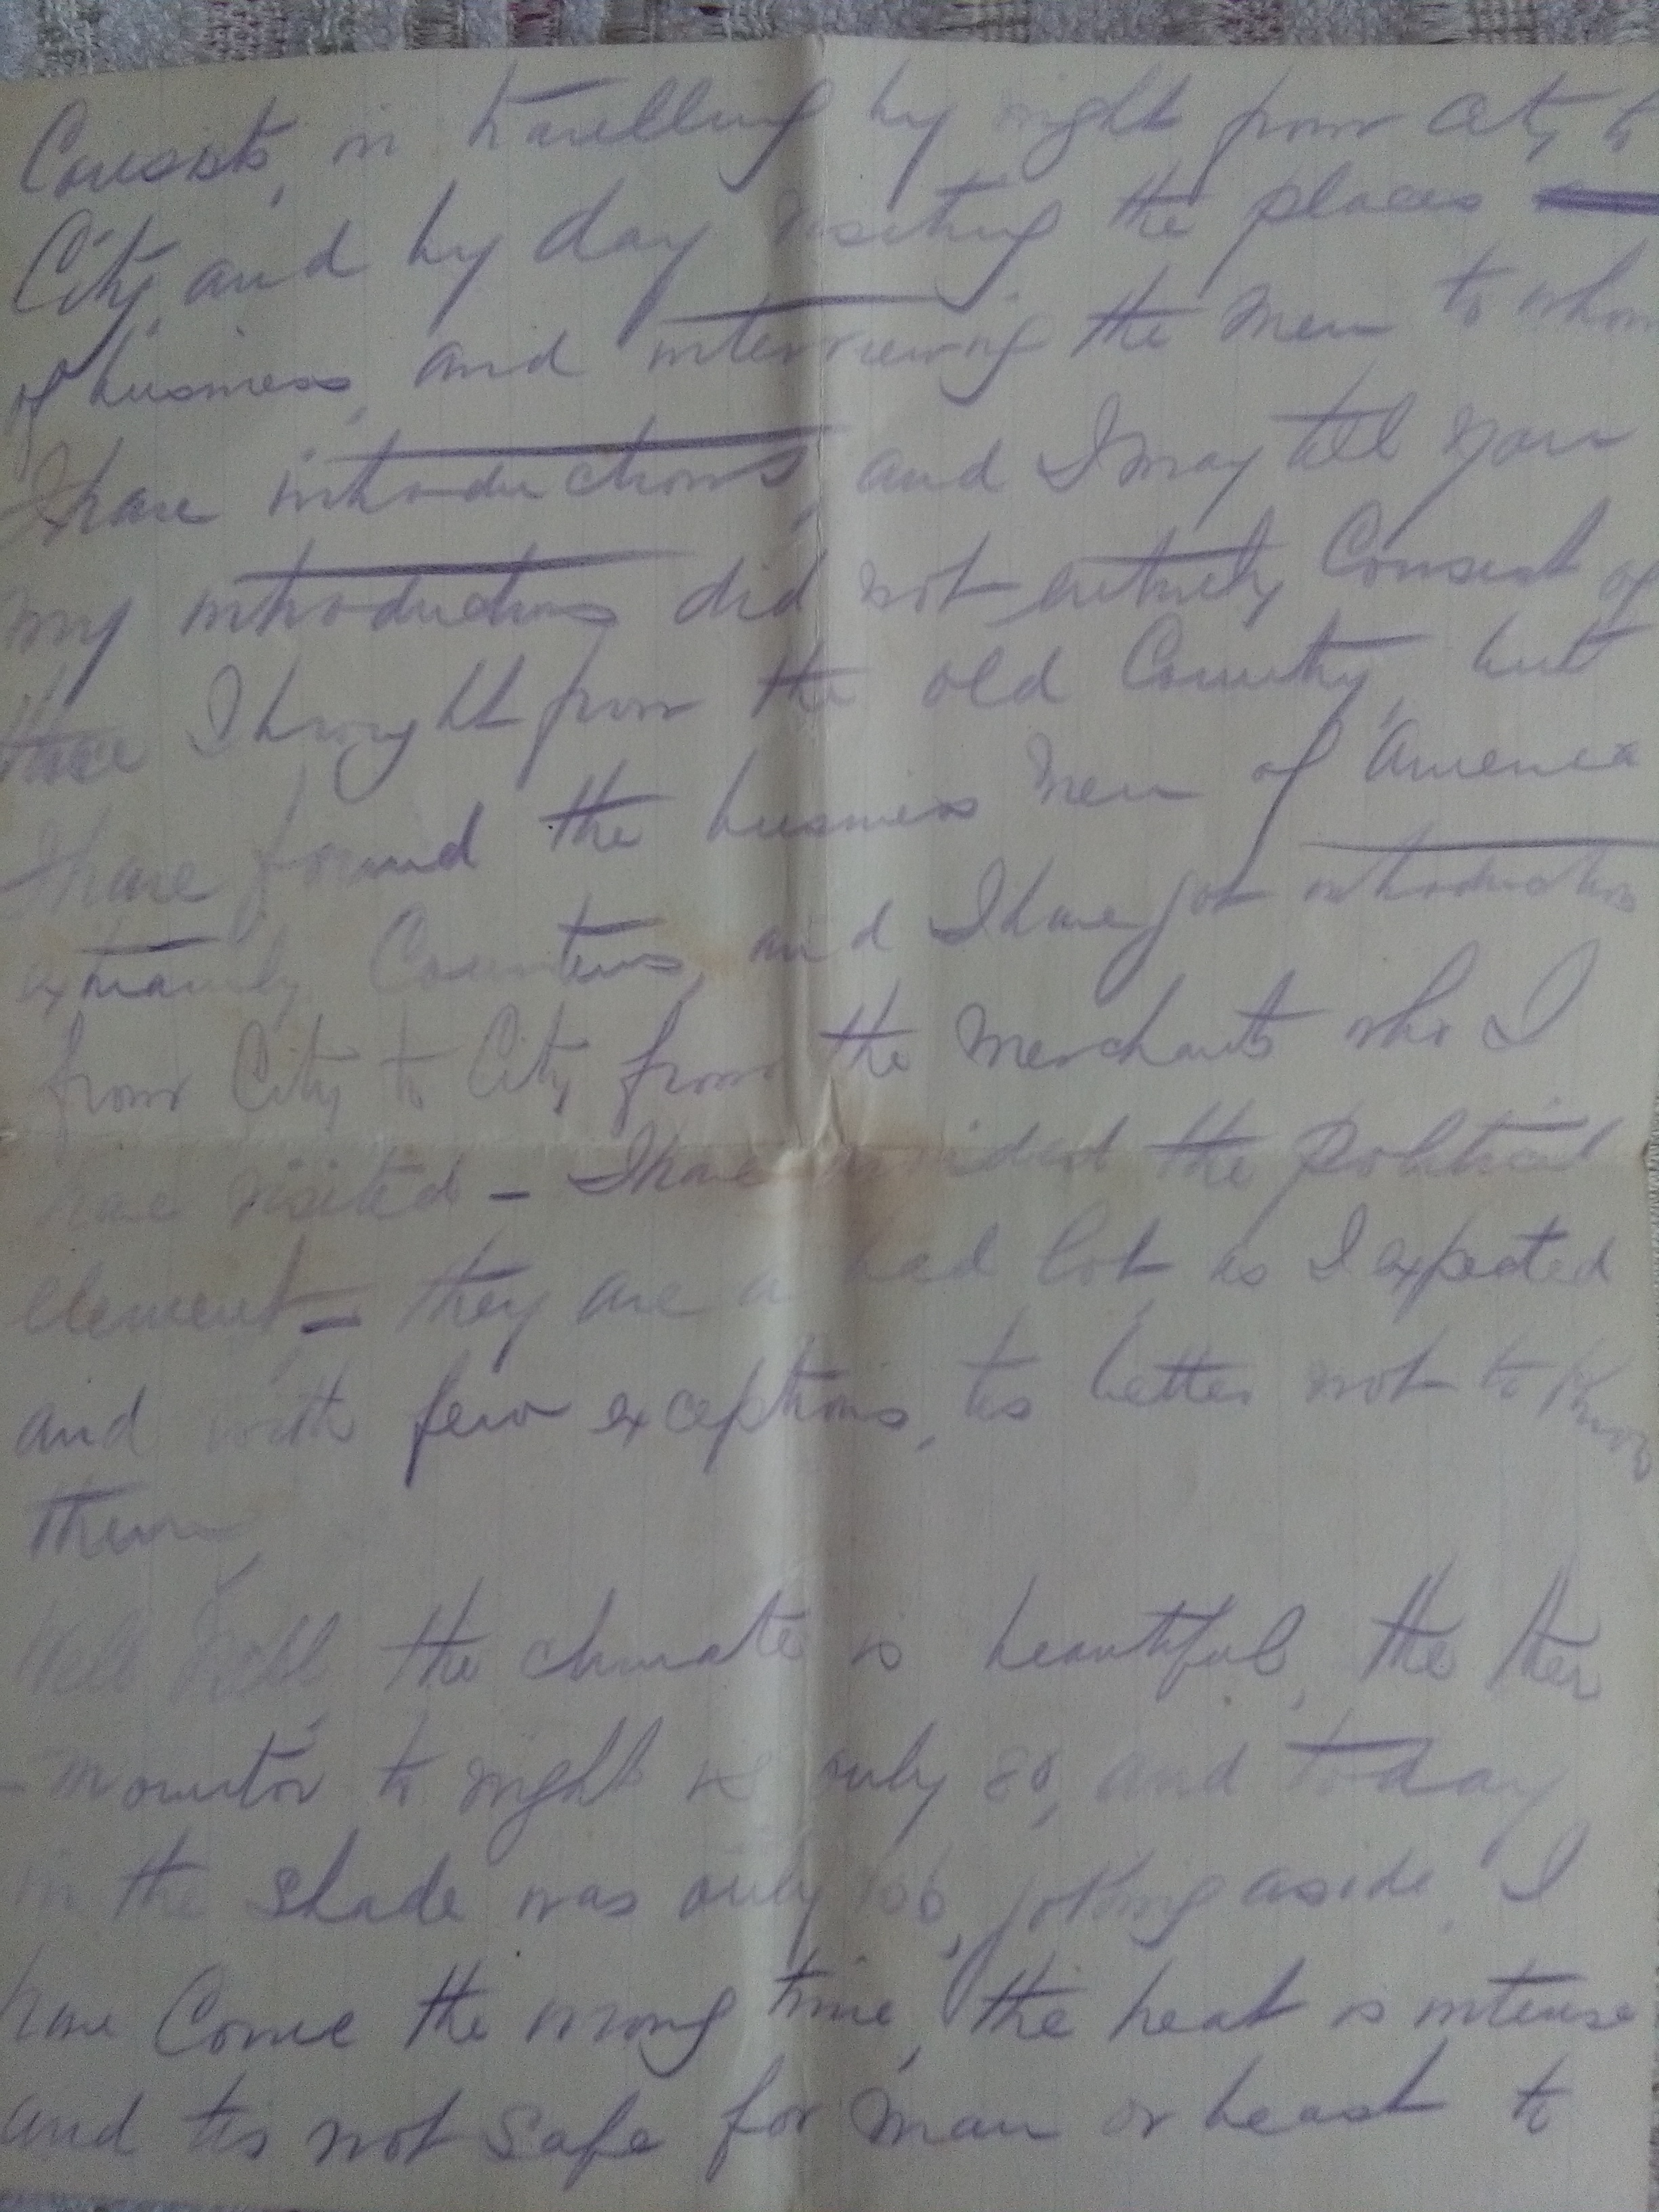 Consists, in travelling by night from City to
City, and by day visiting the places
of business, and interviewing the men to whom
I have introductions, and I may tell you
my introductions did not entirely Consist of
those I brought from the old Country, but
I have found the business men of America
extremely Courteous, and I have got introductions
from City to City from the Merchants who I
have visited - I have avoided the political
element - they are a bad lot as I expected
and with few exceptions, tis better not to know
them,
Well the climate is beautiful, the ther
-monitor to night is only 80, and today
in the shade was only 106, joking aside, I
have Come the wrong time, the heat is intense
and tis not safe for man or beast to